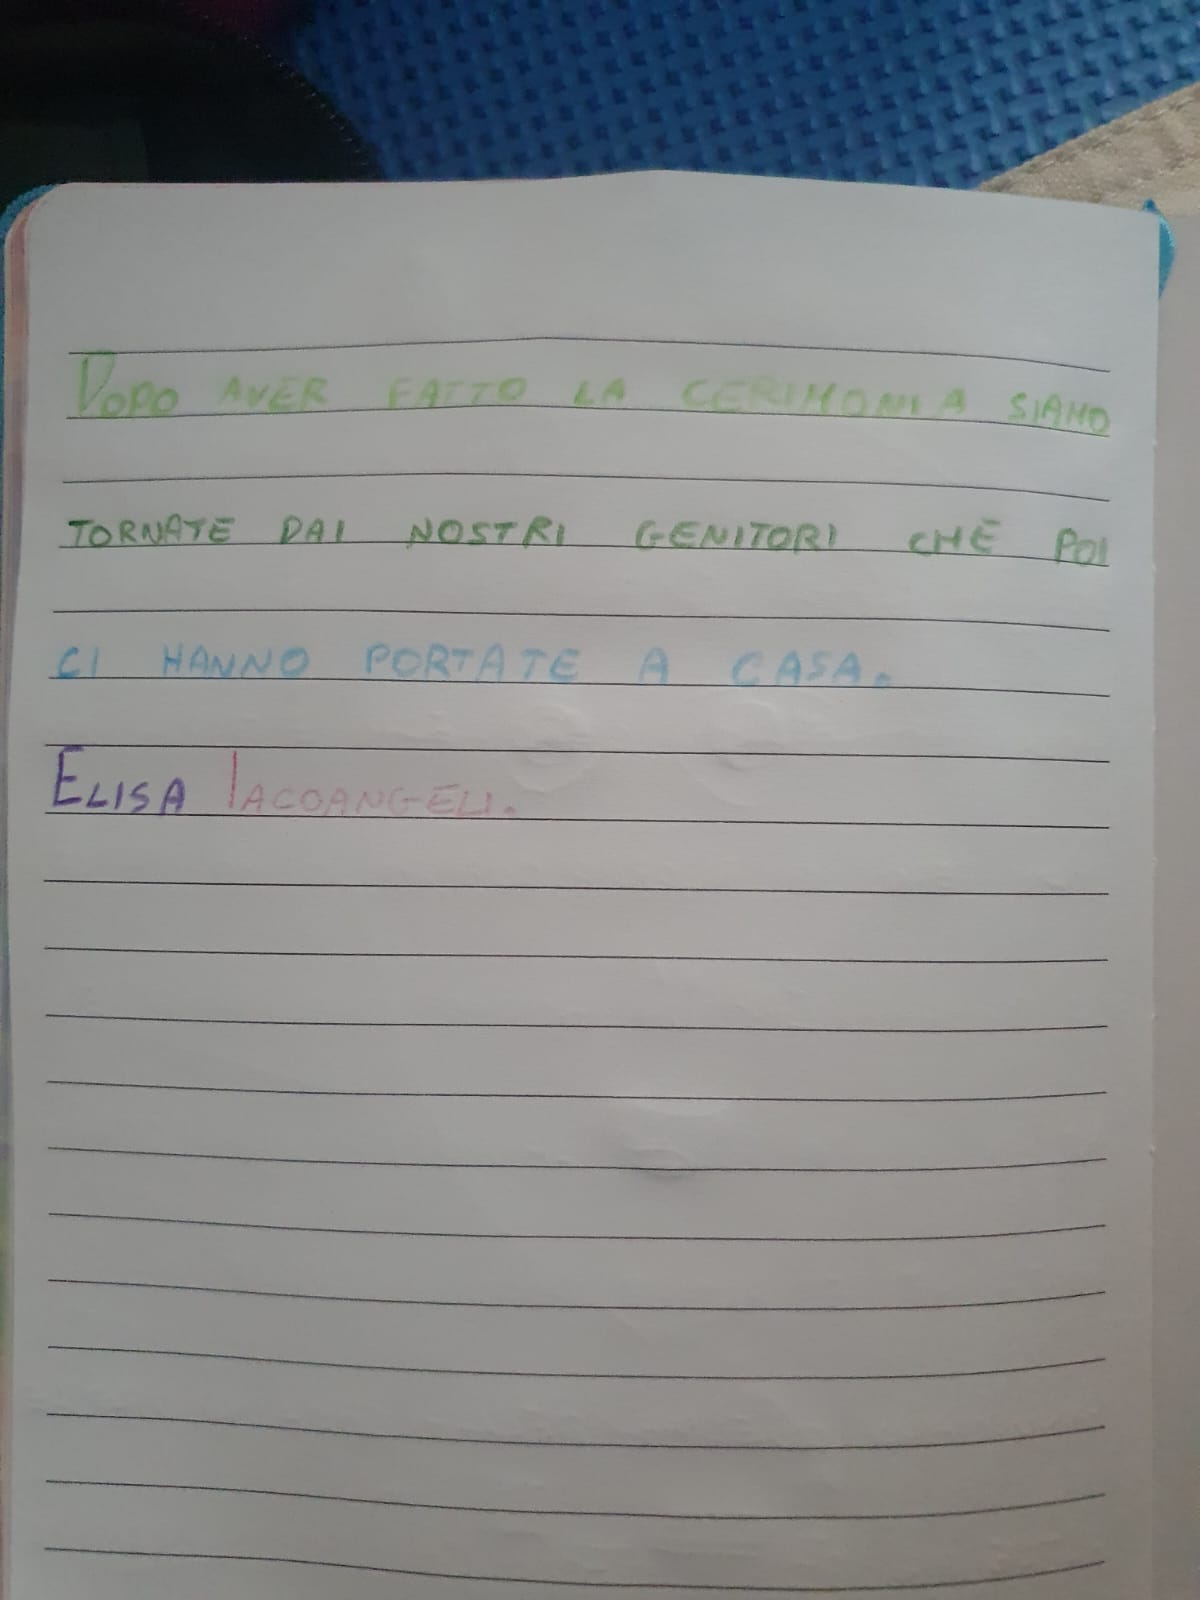 DOPO AVER FATTO LA CERIMONIA SIAMO
TORNATE DAI NOSTRI GENITORI CHE POI
CI HANNO PORTATE A CASA.
ELISA IACOANGELI.